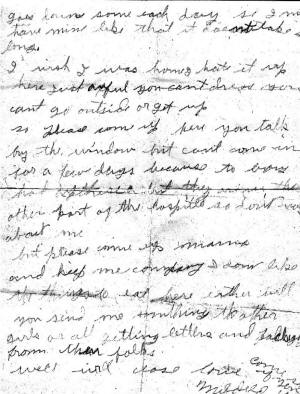 goes down some each day so I
have mine like that it doesnt take
long
I wish I was home hate it up
here just awful you cant dress
cant go outside or get up
so please come up here you talk
by the window but cant come in
for a few days because to boys
had but they
other part of the hospital so dont
about me
but please come up mama
and keep me company I dont like
the things to eat here either will
you send me something the other
girls are all getting letters and
from their folks
well will close love